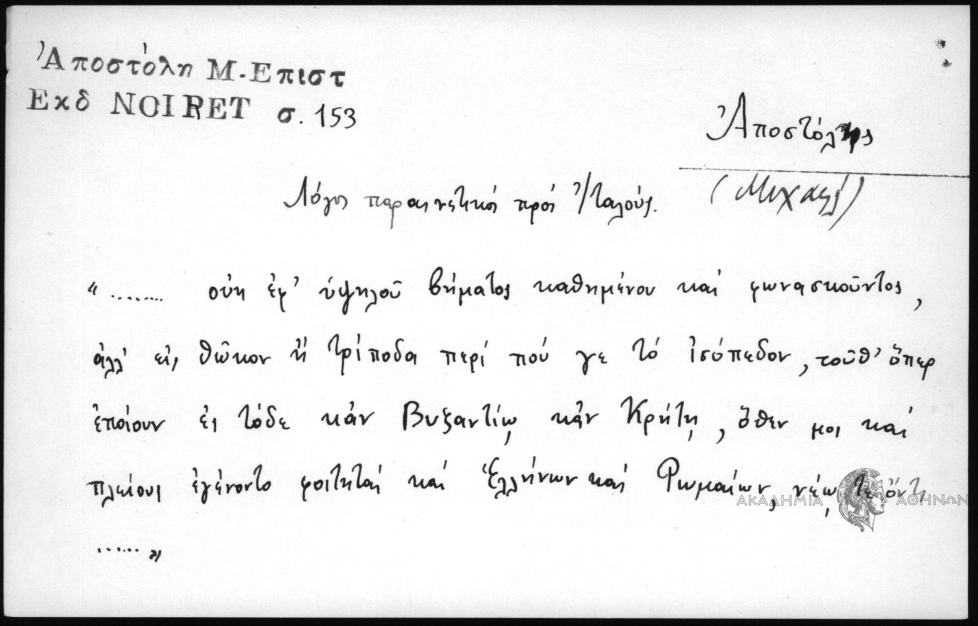 Ἀποστόλη Μ-Επιστ
Εκδ NOIRET σ. 153
Ἀποστόλης
(Μιχαήλ)
Λόγος παραινετικός πρός Ἰταλούς.
"........ οὐκ ἐφ' ὑψηλοῦ βήματος καθημένου καί φωνασκοῦντος,
ἀλλ' εἰς θῶκον ἤ τρίποδα περί πού γε τό ἰσόπεδον, τοῦθ' ὅπερ
ἐποίουν ἐς τόδε κἀν Βυζαντίῳ κἀν Κρήτῃ, ὅθεν μοι καί
πλείους ἐγένοντο φοιτηταί καί Ἑλλήνων καί Ῥωμαίων, νέῳ τε ὄντι
......"
ΑΚΑΔΗΜΙΑ ΑΘΗΝΩΝ